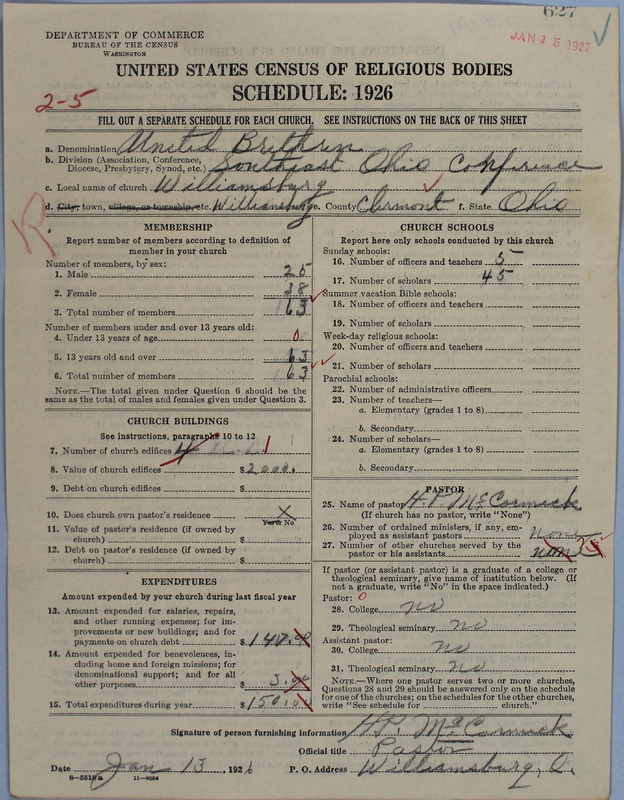 627
DEPARTMENT OF COMMERCE
BUREAU OF THE CENSUS
WASHINGTON
JAN 15 1927
UNITED STATES CENSUS OF RELIGIOUS BODIES
SCHEDULE: 1926
2-5
FILL OUT A SEPARATE SCHEDULE FOR EACH CHURCH. SEE INSTRUCTIONS ON THE BACK OF THIS SHEET
a. Denomination United Brethren
b. Division (Association, Conference, Diocese, Presbytery, Synod, etc.) Southeast Ohio Conference
c. Local name of church Williamsburg
d. City, town, village, or township, etc. Williamsburg e. County Clermont f. State Ohio
R
MEMBERSHIP
Report number of members according to definition of
member in your church
Number of members, by sex:
1. Male 25
2. Female 38
3. Total number of members 63
Number of members under and over 13 years old:
4. Under 13 years of age 0
5. 13 years old and over 63
6. Total number of members 63
NOTE.—The total given under Question 6 should be
same as the total of males and females given under Question 3.
CHURCH BUILDINGS
See instructions, paragraphs 10 to 12
7. Number of church edifices 1
8. Value of church edifices $ 2000.
9. Debt on church edifices $
10. Does church own pastor's residence X
Yes or No
11. Value of pastor's residence (if owned by
church) $
12. Debt on pastor's residence (if owned by
church) $
EXPENDITURES
Amount expended by your church during last fiscal year
13. Amount expended for salaries, repairs,
and other running expenses; for im-
provements or new buildings; and for
payments on church debt $ 147.00
14. Amount expended for benevolences, in-
cluding home and foreign missions; for
denominational support; and for all
other purposes $ 3.00
15. Total expenditures during year $ 150.00
CHURCH SCHOOLS
Report here only schools conducted by this church
Sunday schools:
16. Number of officers and teachers 5
17. Number of scholars 45
Summer vacation Bible schools:
18. Number of officers and teachers
19. Number of scholars
Week-day religious schools:
20. Number of officers and teachers
21. Number of scholars
Parochial schools:
22. Number of administrative officers
23. Number of teachers—
a. Elementary (grades 1 to 8)
b. Secondary
24. Number of scholars—
a. Elementary (grades 1 to 8)
b. Secondary
PASTOR
25. Name of pastor H.P. McCormick
(If church has no pastor, write "None")
26. Number of ordained ministers, if any, em-
ployed as assistant pastors none
27. Number of other churches served by the
pastor or his assistants none
If pastor (or assistant pastor) is a graduate of a college or
theological seminary, give name of institution below. (If
not a graduate, write "No" in the space indicated.)
Pastor: 0
28. College no
29. Theological seminary no
Assistant pastor:
30. College no
31. Theological seminary no
NOTE.—Where one pastor serves two or more churches,
Questions 28 and 29 should be answered only on the schedule
for one of the churches; on the schedules for the other churches,
write "See schedule for church."
Signature of person furnishing information H.P. McCormick
Official title Pastor
Date Jan 13, 1926 P. O. Address Williamsburg, O.
8—5518a 11—9054